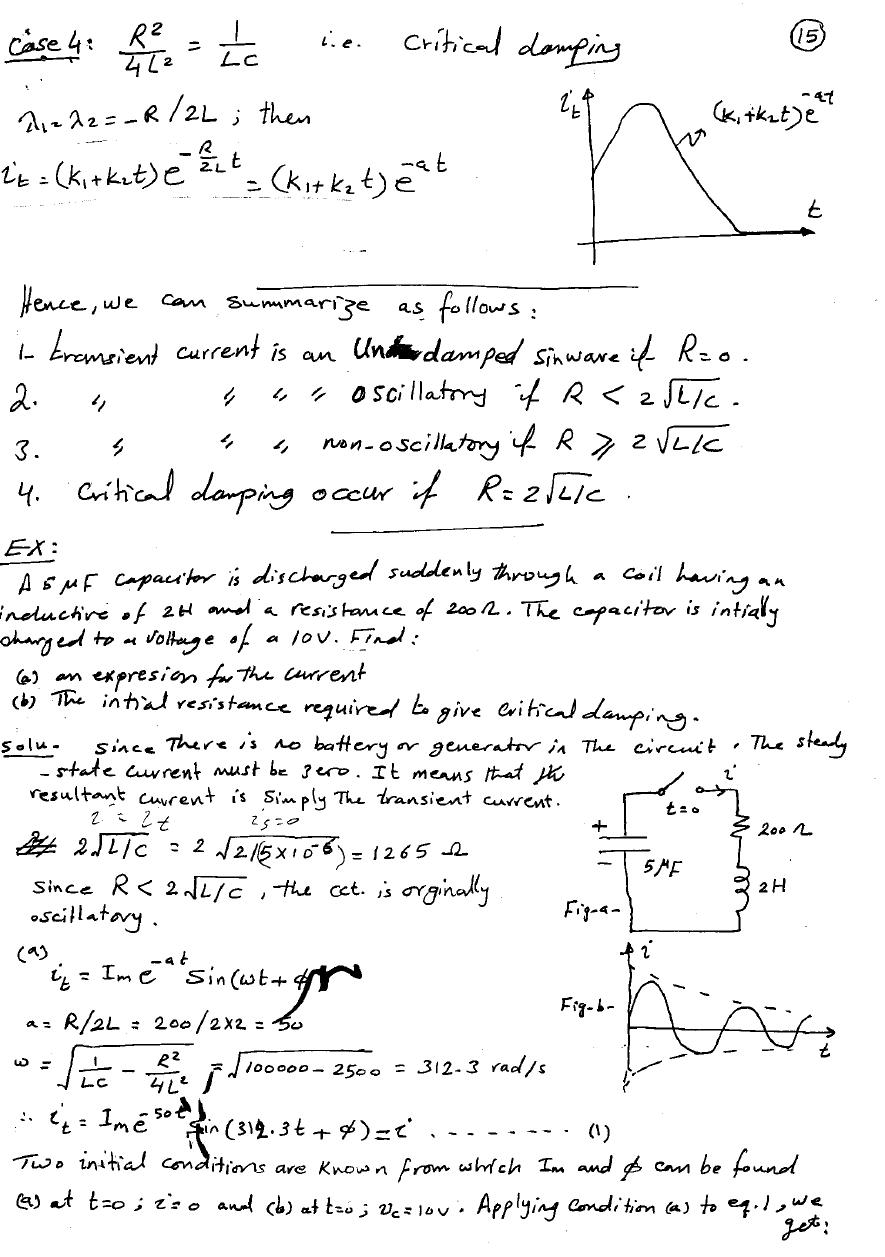 Case 4: R²/4L² = 1/LC i.e. Critical damping
15
λ₁=λ₂=-R/2L ; then
i_t = (k₁+k₂t)e^(-R/2L t) = (k₁+k₂t)e^(-at)
i_t
(k₁+k₂t)e^(-at)
t
Hence, we can summarize as follows:
1- transient current is an Undamped sinware if R=0.
2. 〃 〃 〃 〃 oscillatory if R < 2√L/C.
3. 〃 〃 〃 non-oscillatory if R ⩾ 2√L/C
4. Critical damping occur if R=2√L/C.
EX:
A 5 μF capacitor is discharged suddenly through a coil having an
inductive of 2H and a resistance of 200Ω. The capacitor is intially
charged to a voltage of a 10V. Find:
(a) an expresion for the current
(b) The intial resistance required to give critical damping.
Solu- Since There is no battery or generator in The circuit. The steady
-state current must be zero. It means that
resultant current is simply The transient current.
i = i_t i_s=0
2√L/C = 2√2/(5×10⁻⁶) = 1265 Ω
Since R < 2√L/C, the cct. is orginally
oscillatory.
t=0
i
+
-
5μF
200Ω
2H
Fig-a-
(a)
i_t = Im e^(-at) Sin(ωt + φ)
a = R/2L = 200/2×2 = 50
ω = √(1/LC - R²/4L²) = √100000-2500 = 312.3 rad/s
i
Fig-b-
t
∴ i_t = Im e^(-50t) Sin(312.3t + φ) = i - - - - - - - - (1)
Two initial conditions are known from which Im and φ can be found
(a) at t=0 ; i=0 and (b) at t=0 ; v_c=10v. Applying condition (a) to eq.1, we
get: